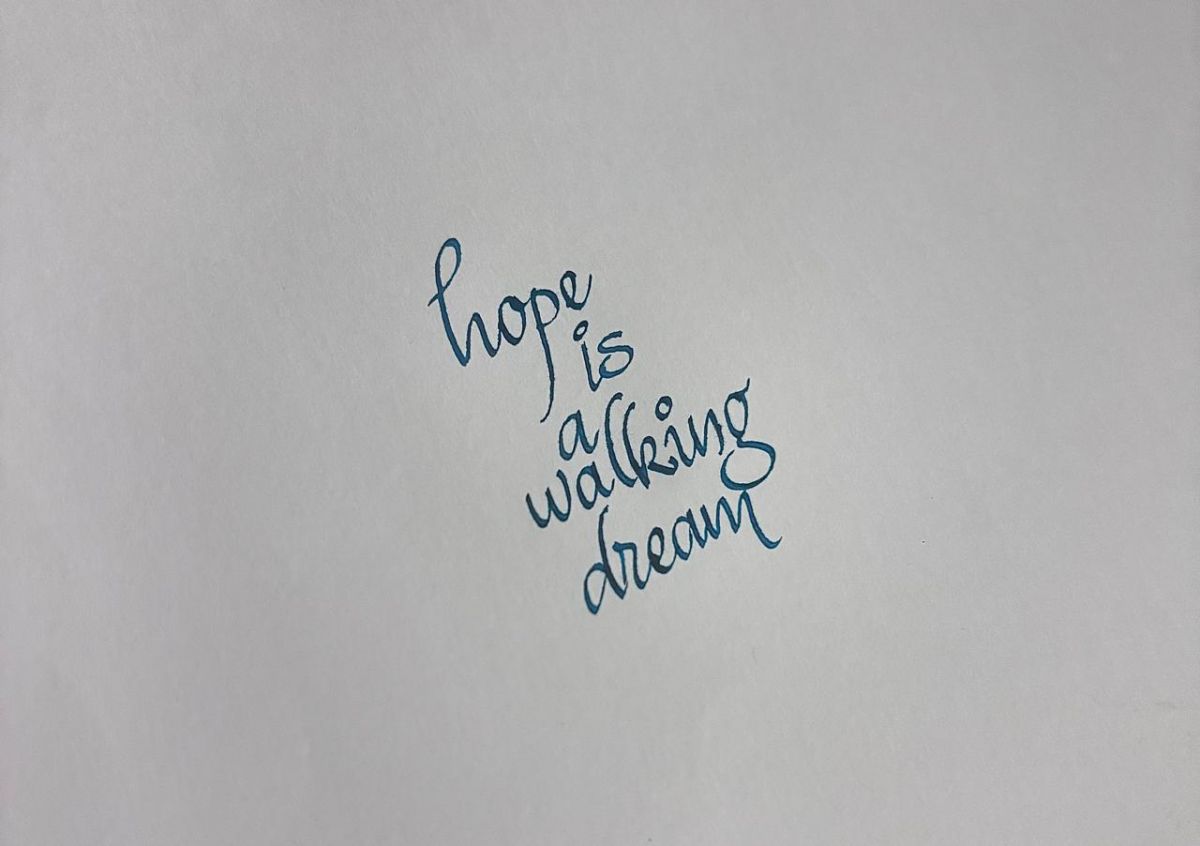 hope
is
a
walking
dream